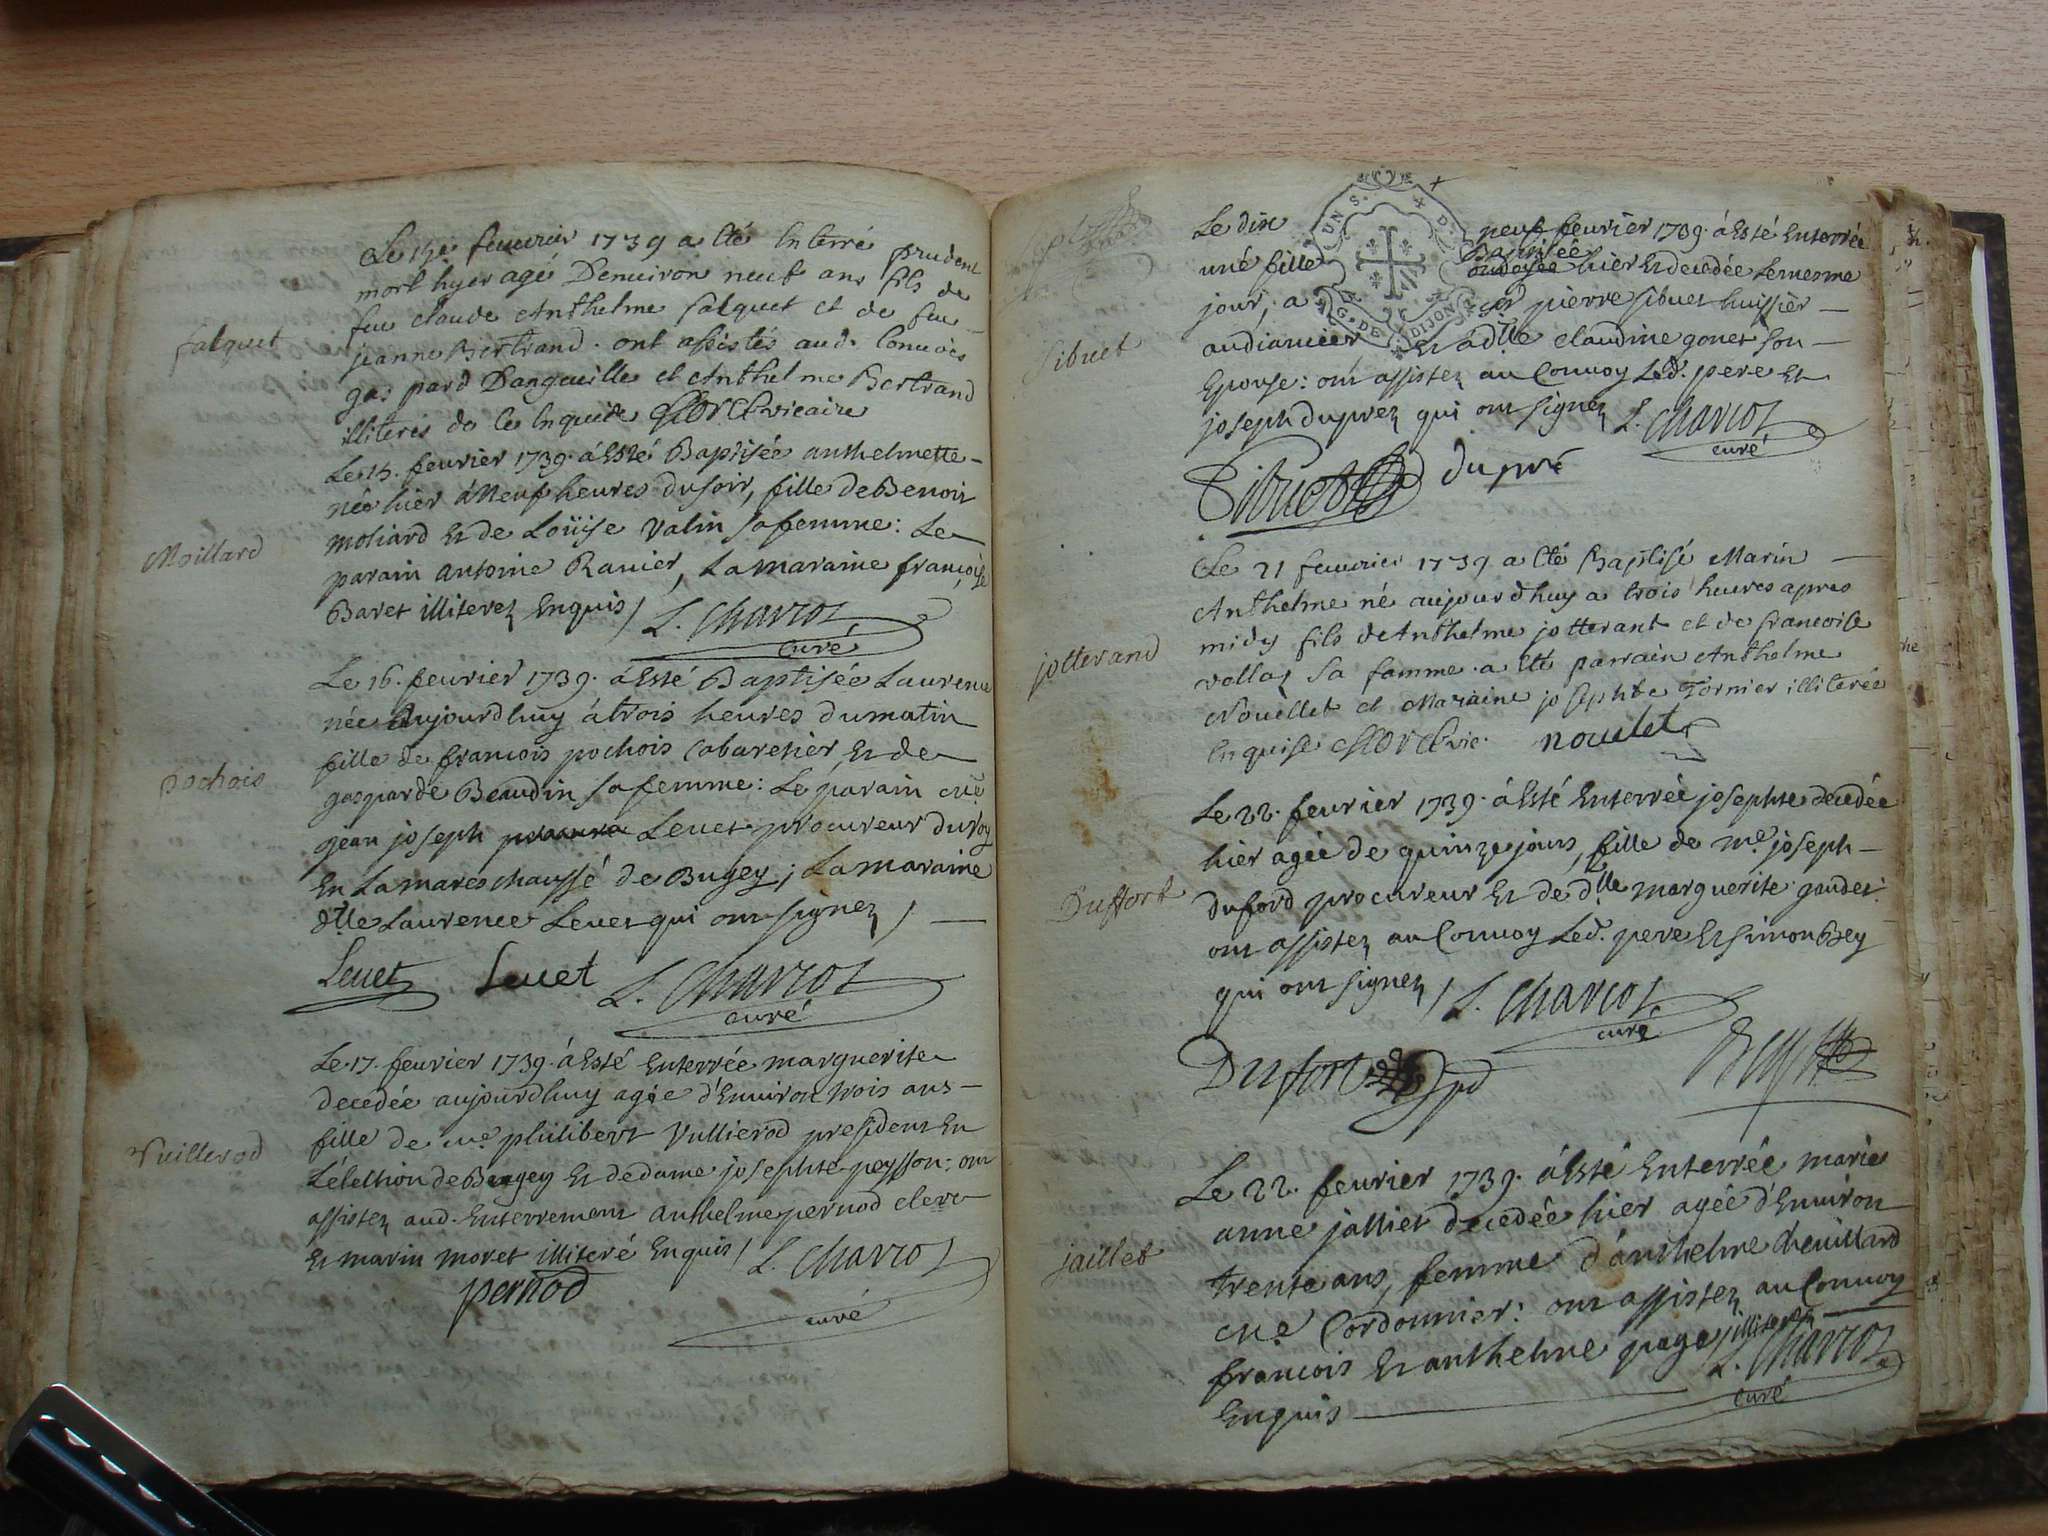 falquet
Le 15e feuurier 1739 a eté Enterré prudent
mort hyer agé Denuiron neuf ans fils de
feu claude Anthelme falquet et de feu
jeanne Bertrand. ont assistés aud. Conuois
gaspard Dangeuille et Anthelme Bertrand
illiterés de ce Enquis vicaire
Moillard
Le 15. feurier 1739. á Esté Baptisée anthelmette
née hier á Neuf heures du soir, fille de Benoit
moliard Et de Loüise Valin sa femme: Le
parain antoine Ranier, La maraine françoise
Baret illiterez Enquis / L. Charcot
curé
pochois
Le 16. feurier 1739. á Esté Baptisée Laurence
née Aujourdhuy á trois heures du matin
fille de françois pochois Cabaretier Et de
gasparde Beaudin sa femme: Le parain me
jean joseph Leuet procureur du roy
En La mareschaussé de Bugey; La maraine
dlle Laurence Leuet qui ont signez /
Leuet Leuet L. Charcot
curé
Vuillerod
Le 17. feurier 1739. á Esté Enterrée marguerite
decedée aujourdhuy agée d'Enuiron trois ans
fille de me philibert Vullierod president En
L'élection de Bugey Et de dame josephte peysson: ont
assistez aud. Enterrement anthelme pernod clerc
Et marin moret illiteré Enquis / L. Charcot
pernod
curé
GN DE DIJON
UN S. D.
Sibuet
Le dix neuf feurier 1739. á Esté Enterrée
une fille Baptisée
ondoyée hier Et decedée Le mesme
jour, a sr pierre sibuet huissier
audiancier Et a dlle claudine gonet son
Epouse: ont assistez au Conuoy Led. pere Et
joseph duprez qui ont signez L. Charcot
curé
Sibuet dupré
jotterand
Le 21 feuurier 1739 a eté Baptisé Marin
Anthelme né aujourdhuy a trois heures apres
midy fils de Anthelme jotterant et de francoise
vollaz sa famme. a eté parrain Anthelme
Nouellet et Maraine josephte Fornier illiterée
Enquise vic. nouelet
Duffort
Le 22. feurier 1739. á Esté Enterrée josephte decedée
hier agée de quinze jours, fille de me. joseph
duford procureur Et de dlle marguerite gaudet:
ont assistez au Conuoy Led. pere Et simon Bey
qui ont signez / L. Charcot
curé
Dufort Bey
jaillet
Le 22. feurier 1739. á Esté Enterrée marie
anne jallier decedée hier agée d'Enuiron
trente ans, femme d'anthelme Cheuillard
me Cordonnier: ont assistez au Conuoy
françois Et anthelme page, illiterez
Enquis L. Charcot
curé